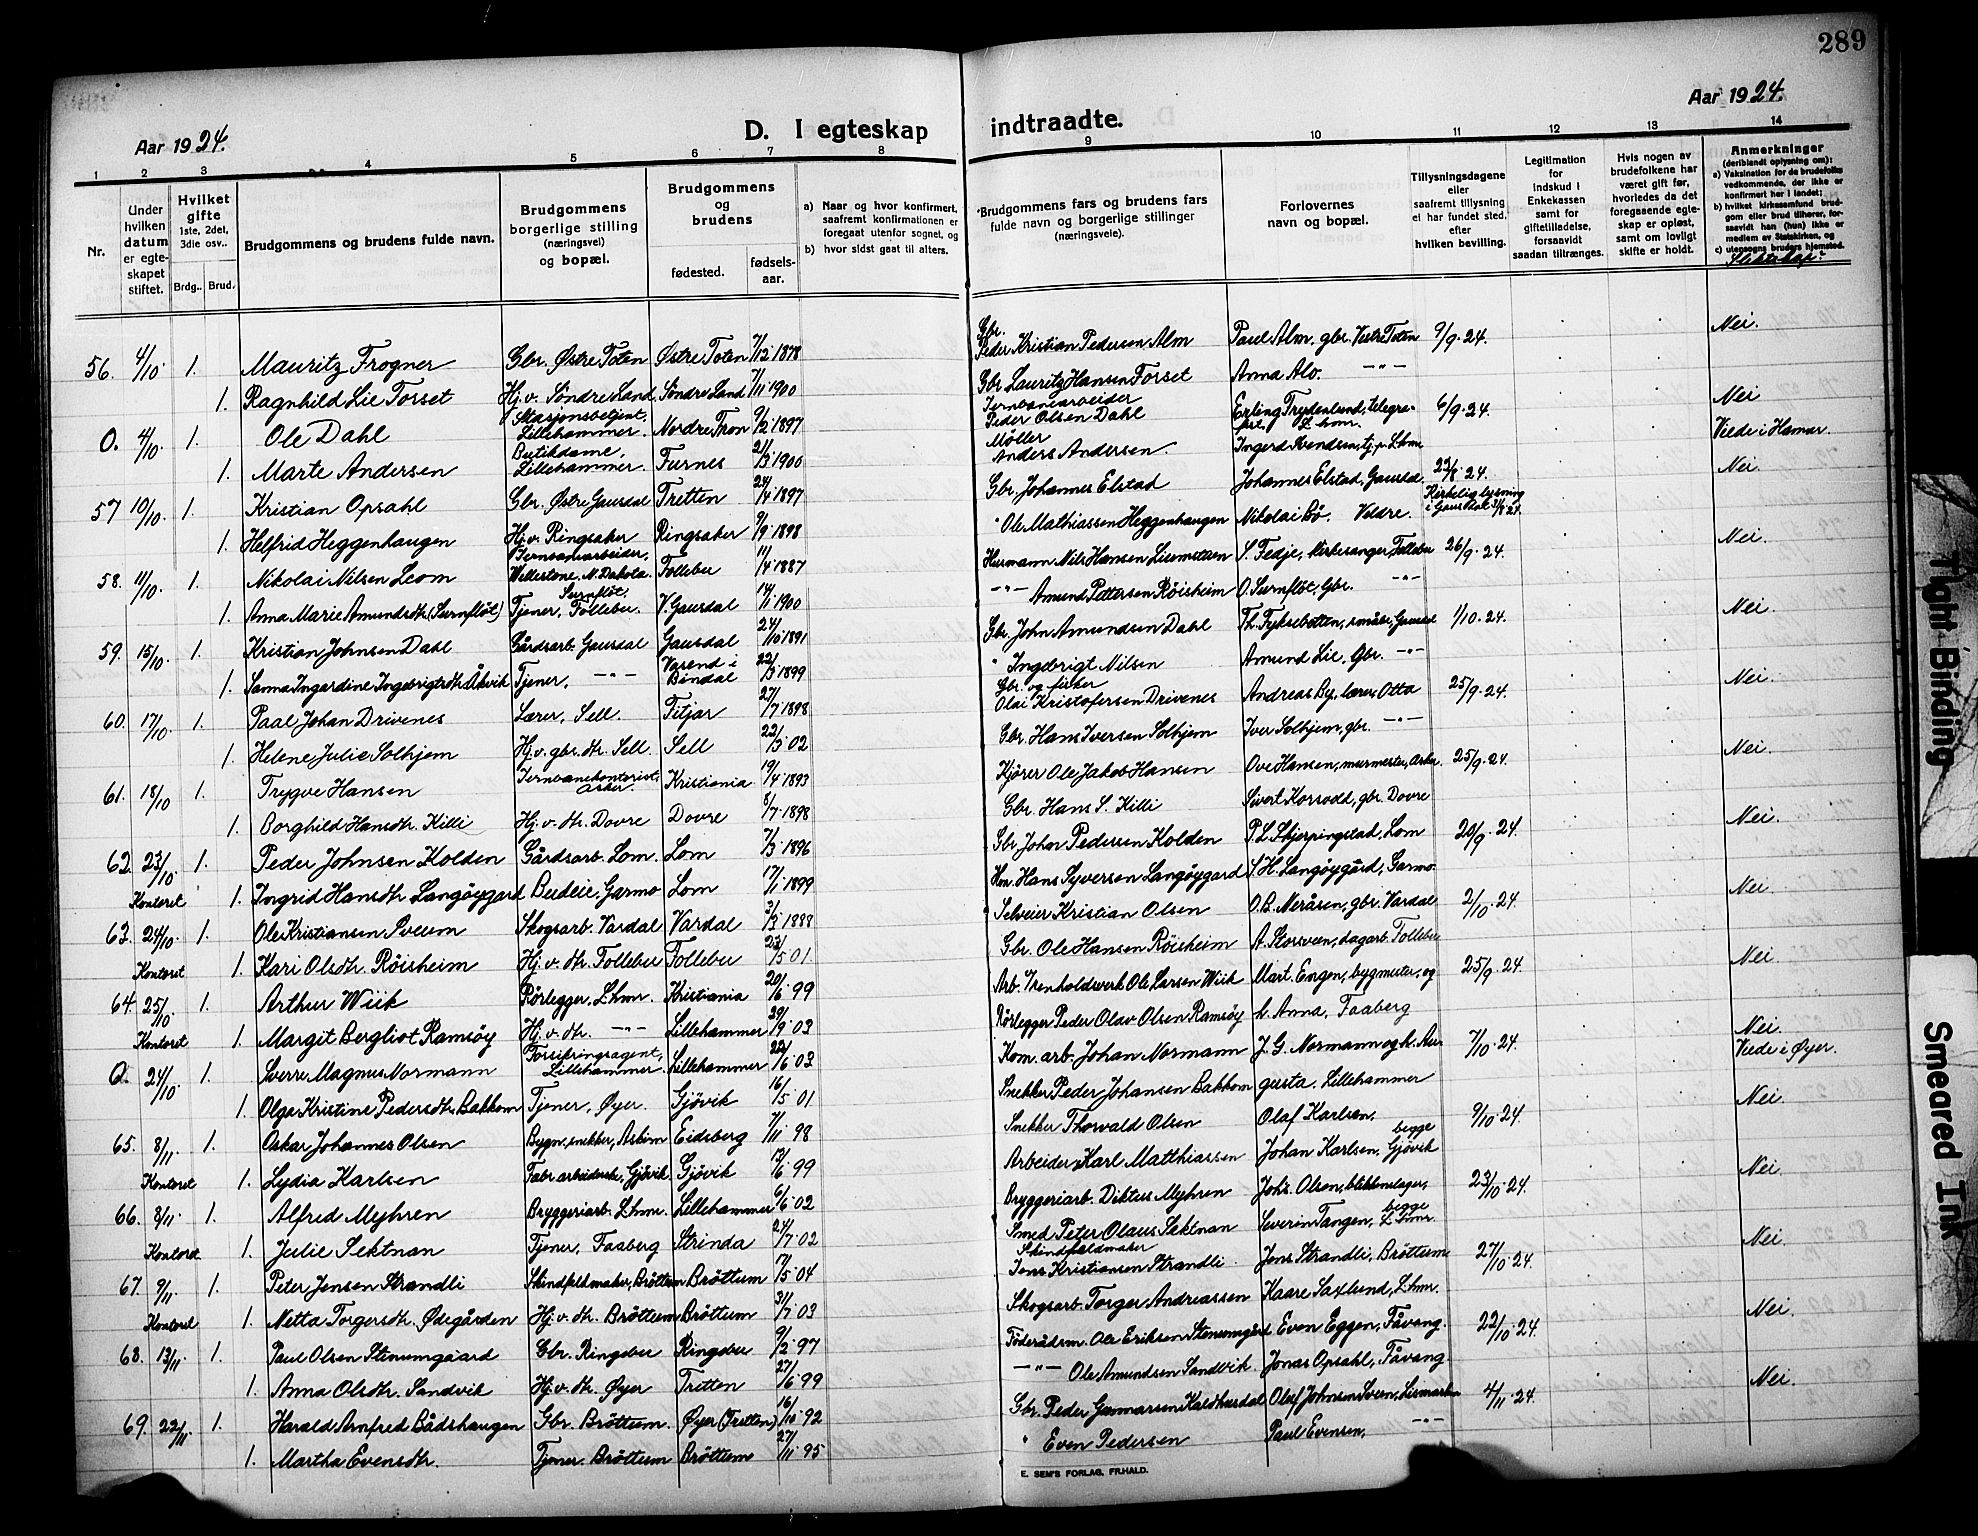 289
Aar 1924.
D. I egteskap indtraadte.
Aar 1924.
1 2 3 4 5 6 7 8 9 10 11 12 13 14
Nr.
Under hvilken datum er egte-skapet stiftet.
Hvilket gifte 1ste, 2det, 3die osv..
Brdg.. Brud.
Brudgommens og brudens fulde navn.
Brudgommens borgerlige stilling (næringsvei) og bopæl.
Brudgommens og brudens
fødested. fødsels-aar.
a) Naar og hvor konfirmert, saafremt konfirmationen er foregaat utenfor sognet, og
b) hvor sidst gaat til alters.
Brudgommens fars og brudens fars fulde navn og borgerlige stillinger (næringsveie).
Forlovernes navn og bopæl.
Tillysningsdagene eller saafremt tillysning ei har fundet sted, efter hvilken bevilling.
Legitimation for indskud i Enkekassen samt for giftetilladelse, forsaavidt saadan tiltrænges.
Hvis nogen av brudefolkene har været gift før, hvorledes da det foregaaende egte-skap er opløst, samt om lovligt skifte er holdt.
Anmerkninger (deriblandt oplysning om):
a) Vaksination for de brudefolks vedkommende, der ikke er konfirmert her i landet;
b) hvilket kirkesamfund brud-gom eller brud tilhører, for-saavidt han (hun) ikke er medlem av Statskirken, og
c) utensogns bruders hjemsted.
Slektskap:
56. 4/10 1. Mauritz Frogner Gbr. Østre Toten Østre Toten 7/12 1878 Gbr. Peder Kristian Pedersen Alm Paul Alm, gbr. Vestre Toten 9/9-24. Nei.
1. Ragnhild Lie Forset Hj.v. Søndre Land Søndre Land 7/11 1900 Gbr Lauritz Hansen Forset Anna Alm. -"-
O. 4/10 1. Ole Dahl Stasjonsbetjent, Lillehammer. Nordre Fron 9/12 1897 Jernbanearbeider Peder Olsen Dahl Erling Frydenlund, telegra- 6/9-24. Nei
1. Marte Andersen Butikdame, Lillehammer. Furnes 21/3 1900 Møller Anders Andersen. Ingerd Svendsen, Lhmr Viede i Hamar.
57 10/10. 1. Kristian Opsahl Gbr. Østre Gausdal Tretten 24/4 1897 Gbr Johannes Elstad Johannes Elstad, Gausdal 23/8-24. Nei.
1. Helfrid Heggenhaugen Hj.v. Ringsaker Ringsaker 9/9 1898 " Ole Mathiassen Heggenhaugen Nikolai Bø, Veldre. Kirkelig lysning i Gausdal
58. 11/10. 1. Nikolai Nilsen Leom Jernbanearbeider, N. Dakota. Follebu 11/4 1887 Husmann Nils Hansen S. Fedje, kirkesanger, Follebu 26/9-24. Nei.
1. Anna Marie Amundsdtr. (Surnflöt) Tjener, Surnflöt, Follebu. V. Gausdal 14/11 1900 -"- Amund Pettersen Röisheim O. Surnflöt, Gbr. -"-
59. 15/10. 1. Kristian Johnsen Dahl Gårdsarb. Gausdal Gausdal 24/10 1891 Gbr. John Amundsen Dahl Th. småbr., Gausdal 1/10-24. Nei.
1. Sanna Ingardine Ingebrigtsdtr. Åkvik Tjener, -"- Vasend i Bindal 22/3 1899 " Ingebrigt Nilsen Amund Lie, Gbr. -"-
60. 17/10. 1. Paal Johan Drivenes Lærer, Sell. Fitjar 27/7 1898 Gbr. og fisker Olai Kristofersen Drivenes Andreas By, lærer, Otta 25/9-24. Nei.
1. Helene Julie Solhjem Hj.v. gbr. dtr. Sell Sell 22/3 02 Gbr. Hans Iversen Solhjem Iver Solhjem, gbr. -"-
61. 18/10 1. Trygve Hansen Jernbanekontorist, Asker. Kristiania 19/4 1893 Kjörer Ole Jakob Hansen Ove Hansen, murmester, Asker. 25/9-24. Nei.
1. Borghild Hansdtr. Killi Hj.v. dtr. Dovre Dovre 8/7-1898 Gbr. Hans S. Killi Sivert Korsvold, gbr. Dovre
62. 23/10. 1. Peder Johnsen Kolden Gårdsarb. Lom. Lom 7/3 1896 Gbr John Pedersen Kolden P.L. Skjerpingstad, Lom 20/9-24. Nei.
Kontoret 1. Ingrid Hansdtr. Langöygard Budeie, Garmo Lom 17/1 1899 Hans Syversen Langöygard S.H. Langöygård, Garmo.
63. 24/10. 1. Ole Kristiansen Sveum Skogsarb. Vardal Vardal 3/3 1888 Selveier Kristian Olsen O.B. Neråsen, gbr. Vardal 2/10-24. Nei.
Kontoret 1. Kari Olsdtr. Röisheim Hj.v. dtr. Follebu Follebu 23/5 01 Gbr Ole Hansen Röisheim A. Storsveen, dagarb. Follebu
64. 25/10. 1. Arthur Wiik Rörlegger, Lhmr. Kristiania 20/6-99 Arb. Trenholdsverk Ole Larsen Wiik Mart. Engen, bygmester, og 25/9-24. Nei.
Kontoret 1. Margit Bergliot Ramsöy Hj.v. dtr. -"- Lillehammer 29/9 03 Rörlegger Peder Olav Olsen Ramsöy h. Anna, Faaberg
O. 24/10. 1. Sverre Magnus Normann Forsikringsagent, Lillehammer. Lillehammer 22/6 03 Kom. arb. Johan Normann J.G. Normann og h. Au- 7/10-24. Nei. Viede i Øyer.
1. Olga Kristine Pedersdtr. Bakkom Tjener, Øyer. Gjövik 16/5 01 Snekker Peder Johansen Bakkom gusta. Lillehammer
65. 8/11 1. Oskar Johannes Olsen Bygn. snekker, Askim Eidsberg 7/11 98 Snekker Thorvald Olsen Olaf Karlsen, 9/10-24. Nei.
Kontoret 1. Lydia Karlsen Fabr. arbeiderske, Gjövik Gjövik 13/6-99 Arbeider Karl Matthiassen Johan Karlsen, begge Gjövik
66. 8/11 1. Alfred Myhren Bryggeriarb. Lhmr. Lillehammer 6/6 02 Bryggeriarb. Diktus Myhren Johs. Olsen, blikkenslager, 23/10-24. Nei.
Kontoret 1. Julie Sektnan Tjener, Faaberg Strinda 24/7-02 Smed Peter Olaus Sektnan Severin Tangen, begge Lhmr.
67. 9/11. 1. Peter Jensen Strandli Skindfeldmaker, Bröttum Bröttum 7/5-04 Skindfeldmaker Jens Kristiansen Strandli. Jens Strandli, Bröttum 27/10-24. Nei.
Kontoret 1. Netta Torgersdtr. Ødegården Hj.v. dtr. Bröttum Bröttum 31/7 03 Skogsarb. Torger Andreassen Kaare Saxlund, Lhmr.
68. 13/11. 1. Paul Olsen Stenumgaard Gbr. Ringebu Ringebu 9/2-97 Föderådsm. Ole Eriksen Stenumgård Even Eggen, Fåvang. 22/10-24. Nei.
1. Anna Olsdtr. Sandvik Hj.v. dtr. Øyer Tretten 27/6-99 -"- Ole Amundsen Sandvik. Jonas Opsahl, Fåvang
69. 22/11. 1. Harald Arnfred Bådshaugen Gbr. Bröttum. Øyer (Tretten) 16/10-92 Gbr. Peder Gunnarsen Kaldhusdal Olaf Johnsen Sveen, 4/11-24. Nei.
1. Martha Evensdtr. Tjener. Bröttum Bröttum 27/11-95 " Even Pedersen Paul Evensen, -"-
E. SEM'S FORLAG, FR.HALD.
Tight Binding
Smeared Ink